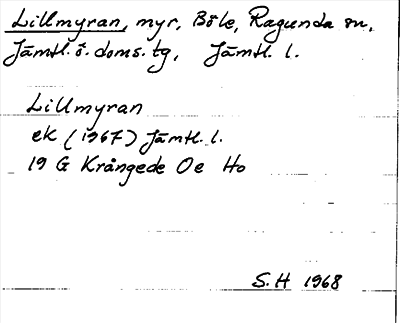 Lillmyran, myr, Böle, Ragunda sn,
Jämtl. ö. doms. tg, Jämtl. l.
Lillmyran
ek (1967) Jämtl. l.
19 G Krångede Oe Ho
S.H 1968